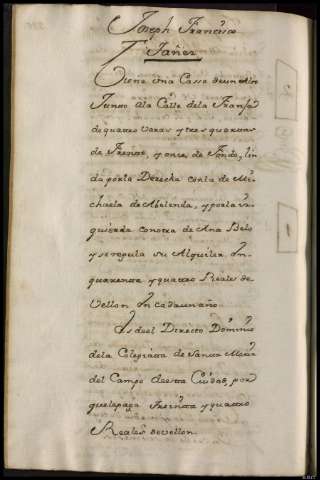 Joseph Francisco
Yañez
Tiene una Cassa deun alto
Junto ála Calle dela Franja
de quatro varas y tres quartas
de Frente, y once, de fondo, lin
da porla Derecha conla de Mi
chaela de Abelenda, y porla Yz
quierda conotra de Ana Belo
y se regula su Alquiler En
quarenta y quattro Reales de
Vellon En cadaunaño.
Es deel Directo Dominio
dela Colegiata de Santa Maria
del Campo deesta Ciudad, por
quelepaga Treinta y quattro
Reales devellon.